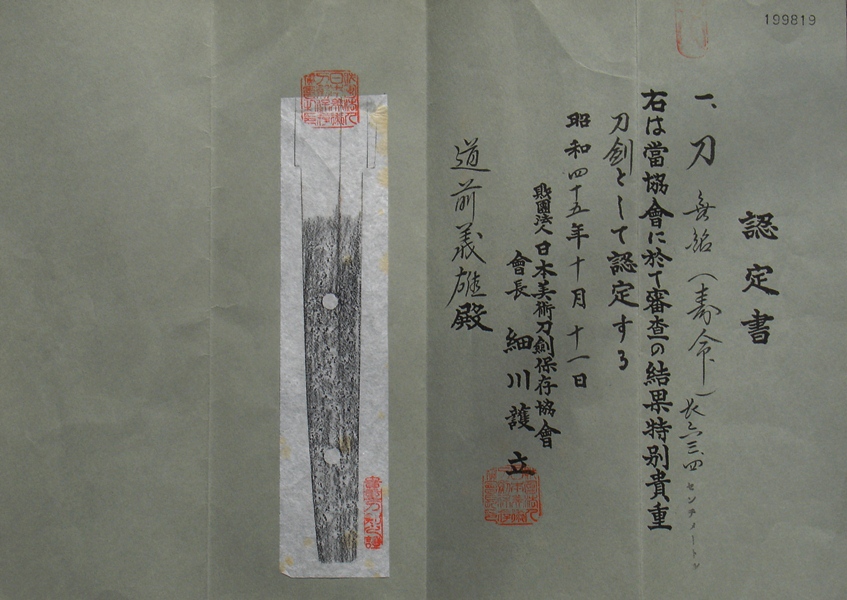 199819
認定書
一、刀 無銘(寿命)長六三、四センチメートル
右は當協會に於て審査の結果特別貴重
刀劍として認定する
昭和四十五年十月十一日
財團法人日本美術刀劍保存協會
會長 細川護立
道前義雄殿